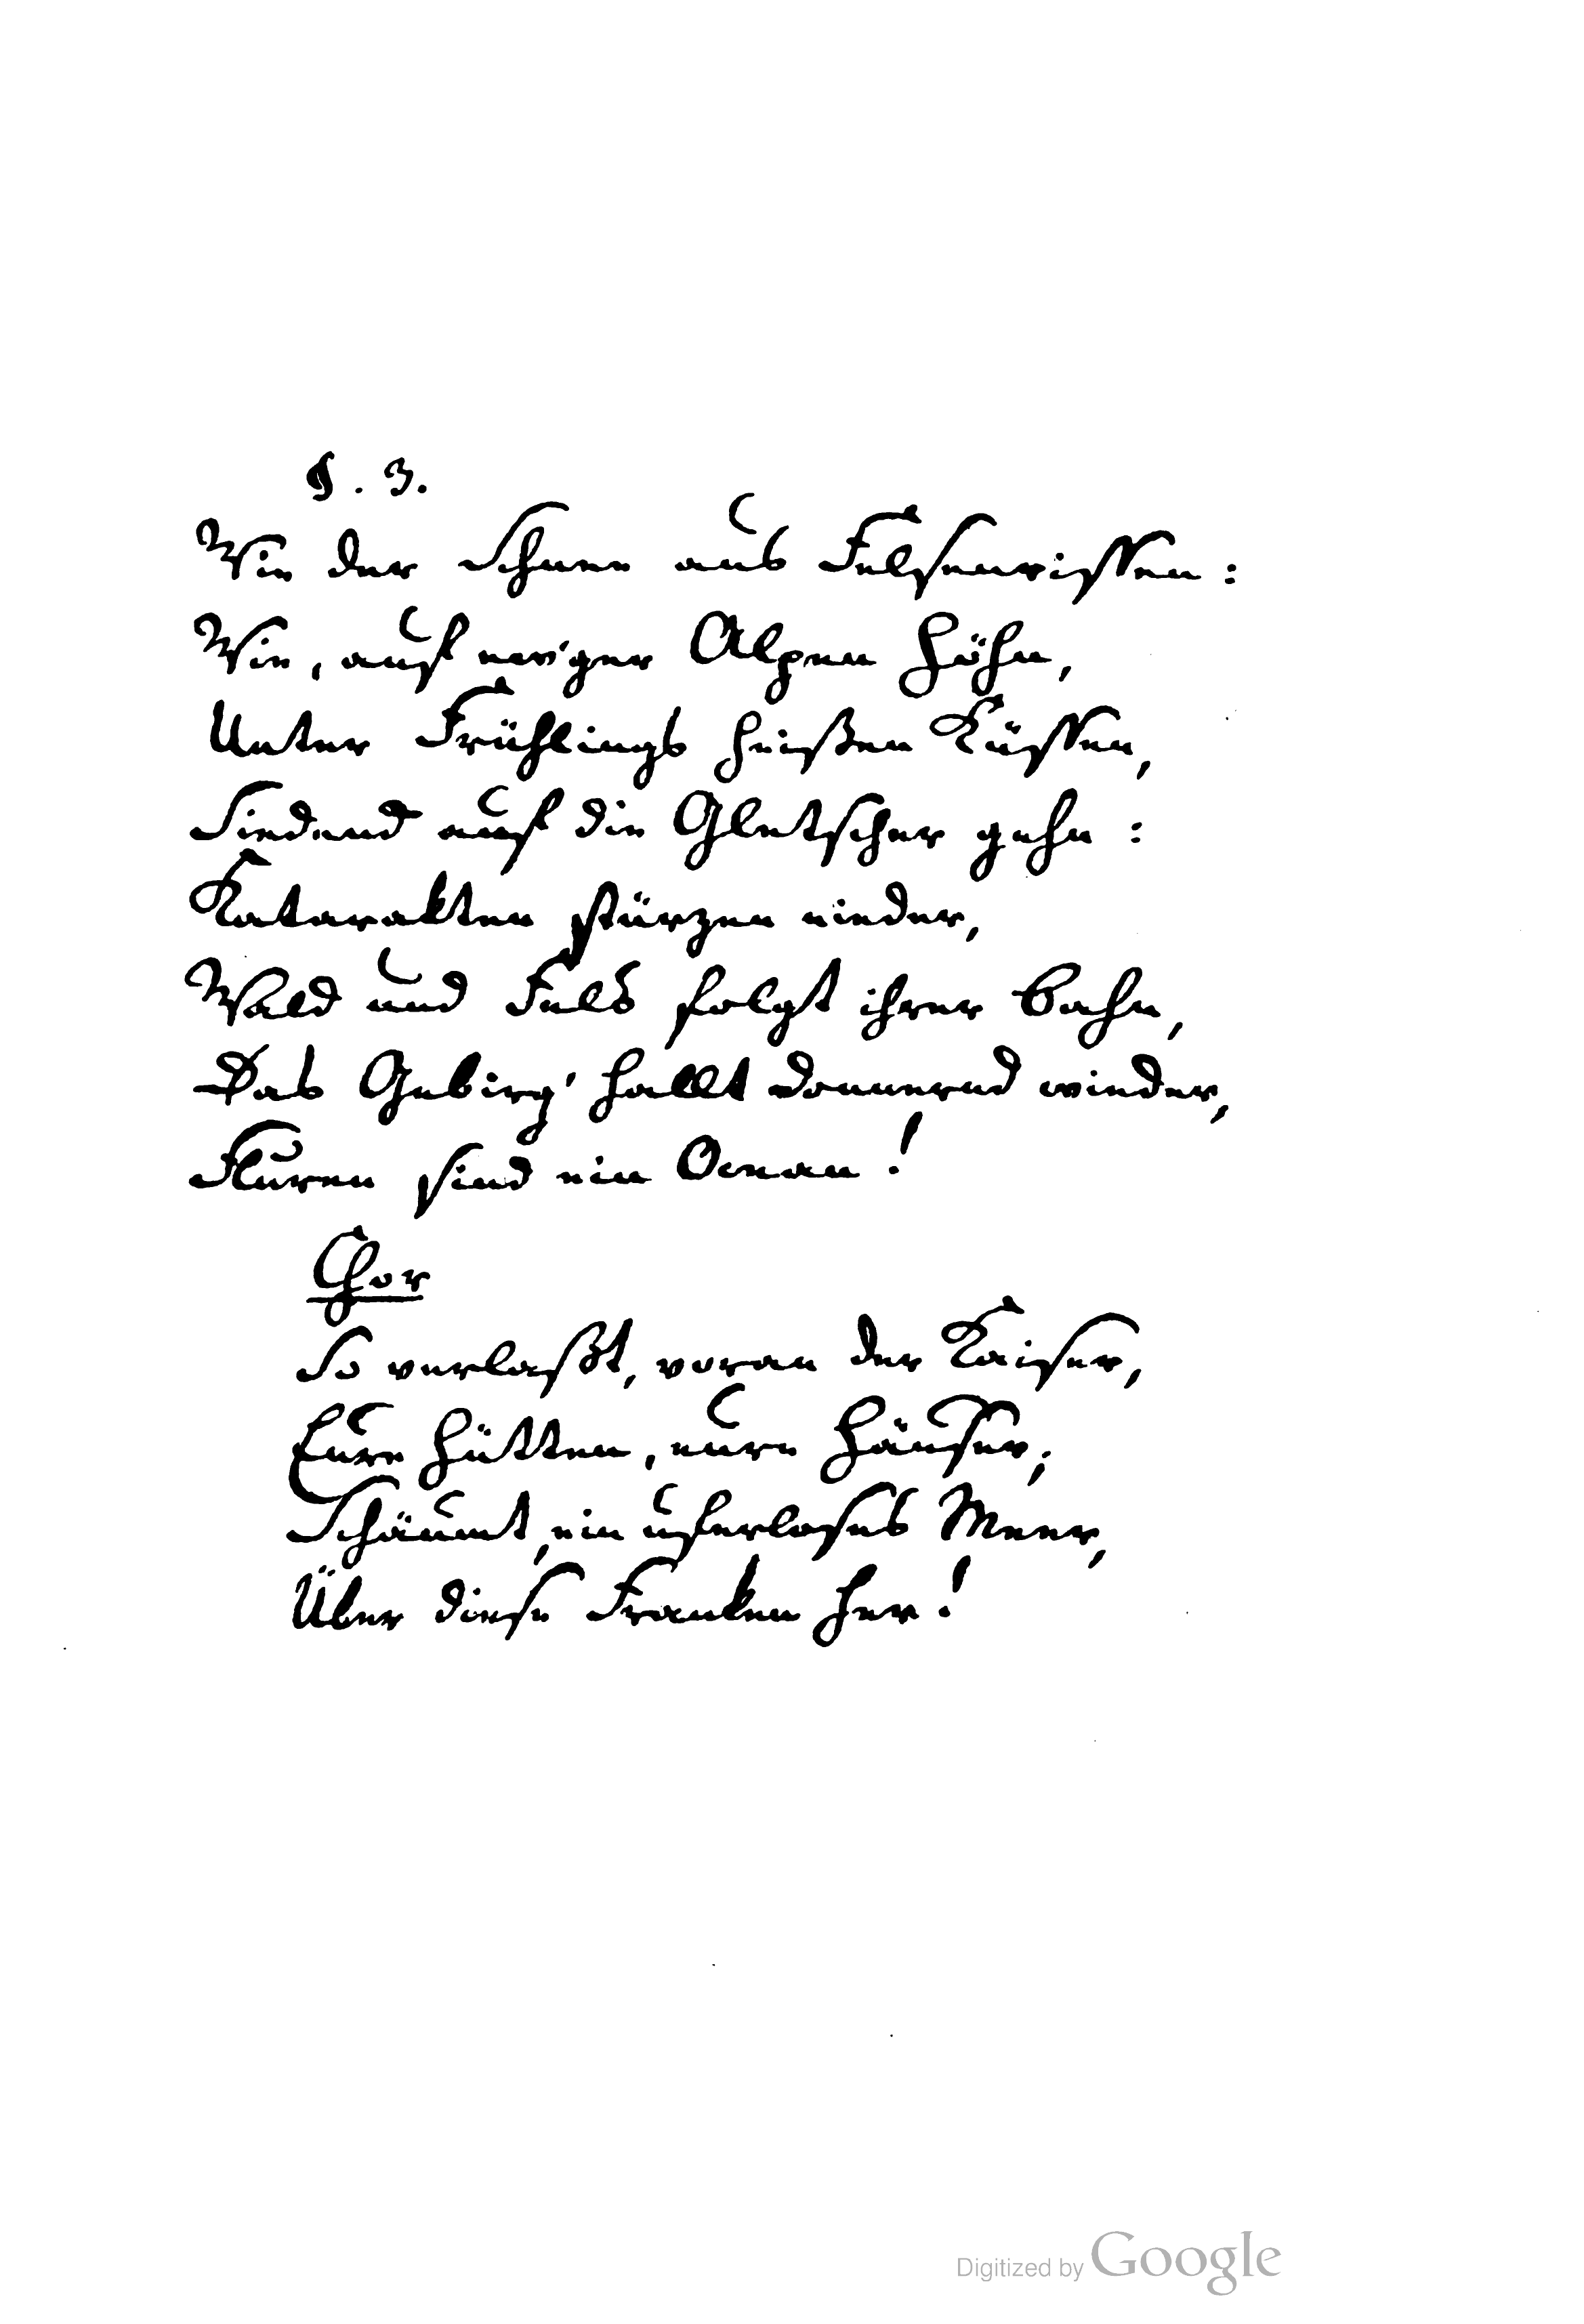 §. 3.
Wie der Schnee aus Felsenrissen:
Wie, auf ew'ger Alpen Höhn,
Unter Frühlings heißen Küssen,
Siedend auf die Gletscher gehn:
Katarakten stürzen nieder,
Wald und Fels folgt ihrer Bahn,
Das Gebirg' hallt donnernd wieder,
Fluren sind ein Ocean!
Chor
So verlaßt, voran der Kaiser,
Eure Hütten, eure Häuser;
Schäumt, ein uferloses Meer,
Über diese Franken her!
Digitized by Google